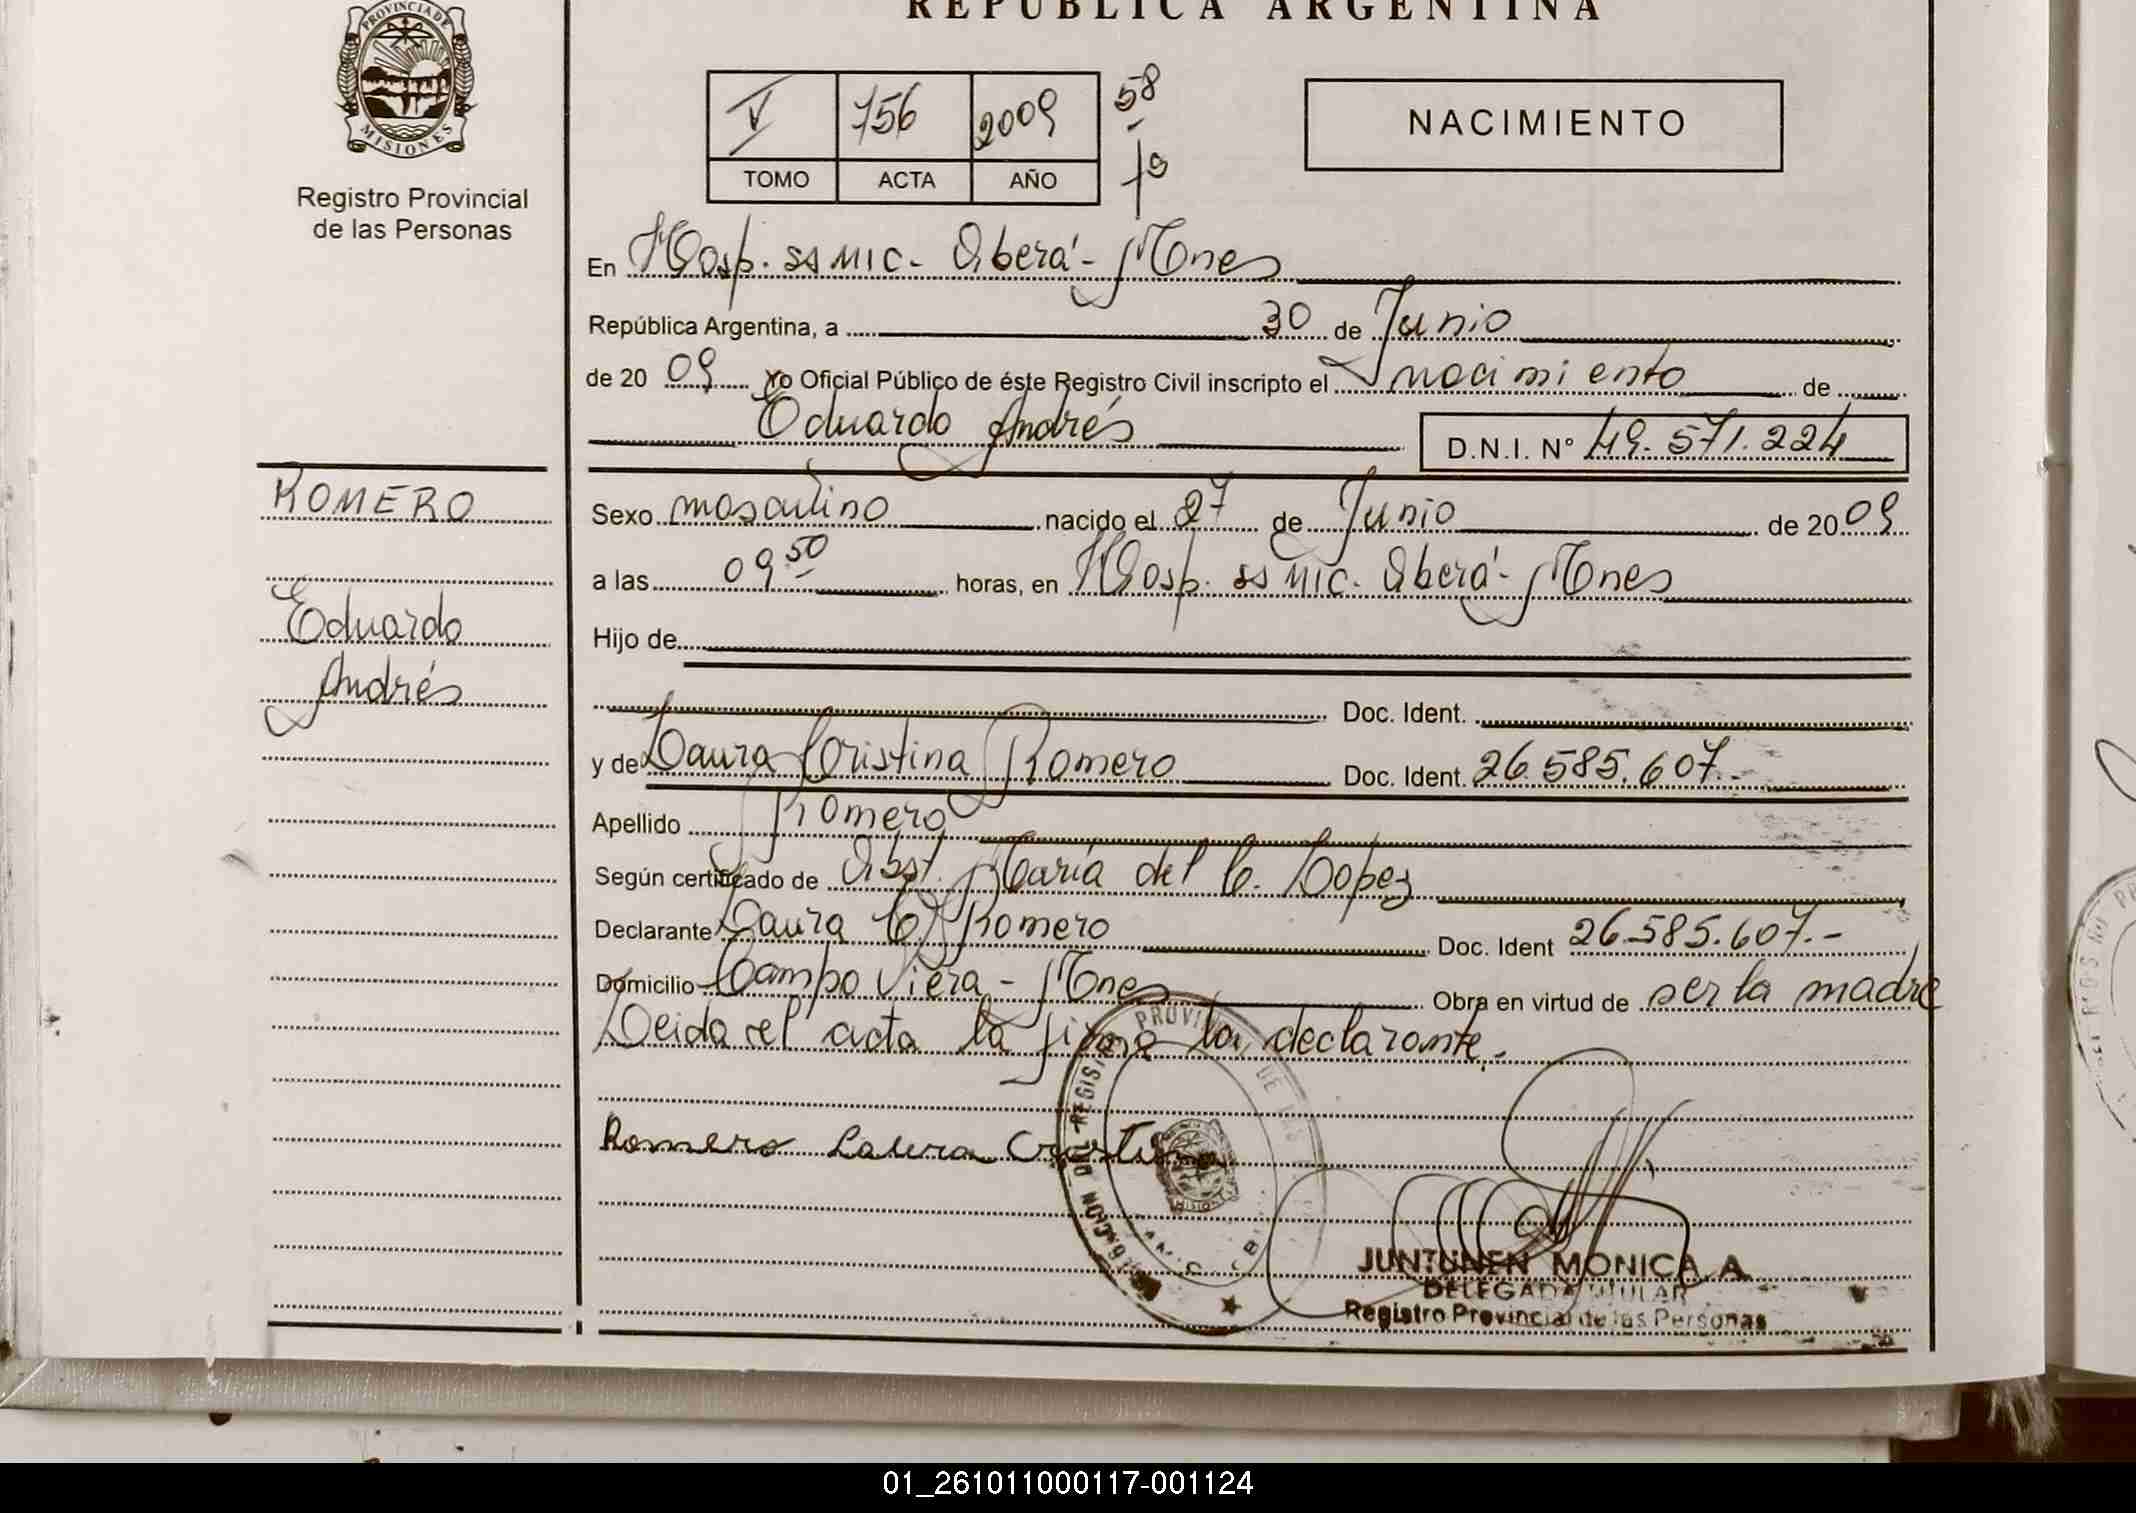 REPUBLICA ARGENTINA
PROVINCIA DE
MISIONES
Registro Provincial
de las Personas
V 756 2009
TOMO ACTA AÑO
58
79
NACIMIENTO
En Hosp. SAMIC - Oberá - Mnes
República Argentina, a 30 de Junio
de 20 09 Yo Oficial Público de éste Registro Civil inscripto el nacimiento de
Eduardo Andrés D.N.I. N° 49.571.224
ROMERO
Eduardo
Andrés
Sexo masculino nacido el 27 de Junio de 20 09
a las 09 50 horas, en Hosp. SAMIC - Oberá - Mnes
Hijo de
Doc. Ident.
y de Laura Cristina Romero Doc. Ident. 26.585.607.-
Apellido Romero
Según certificado de Obst. María del C. Lopez
Declarante Laura C. Romero Doc. Ident 26.585.607.-
Domicilio Campo Viera - Mnes Obra en virtud de ser la madre
Leida el acta la firma la declarante.
Romero Laura Cristina
JUNTUNEN MONICA A.
DELEGADA TITULAR
Registro Provincial de las Personas
01_261011000117-001124